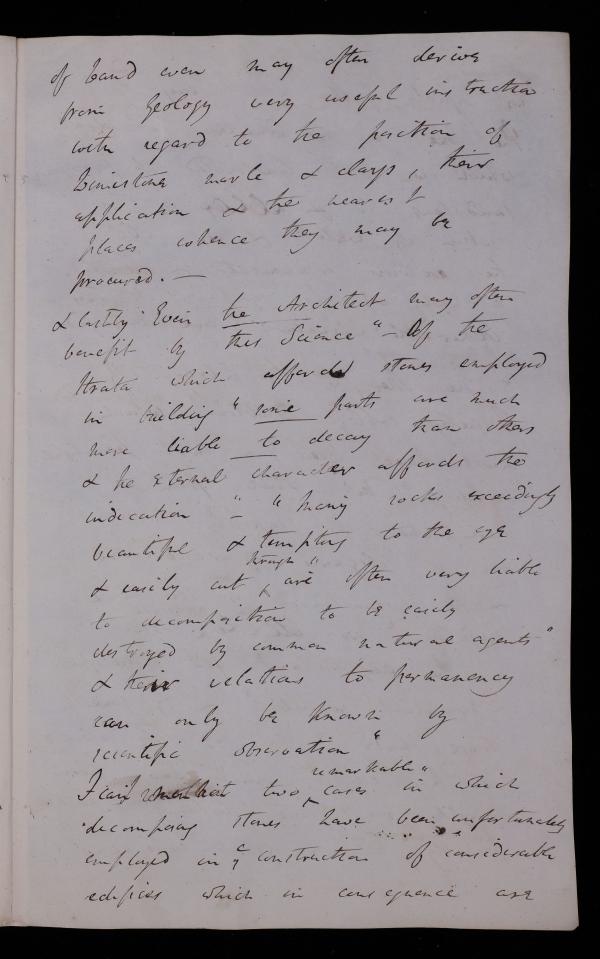 of land even may often derive
from Geology very useful instruction
with regard to the position of
Limestone marle & clays, their
application & the nearest
places whence they may be
procured. —
& lastly Even the Architect may often
benefit by this Science" – Of the
Strata which afford stones employed
in building " some parts are much
more liable to decay than others
& the external character affords the
indication " – " Many rocks exceedingly
beautiful & tempting to the eye
though "
& easily cut ^ are often very liable
to decomposition to be easily
destroyed by common natural agents"
& their relations to permanency
can only be known by
scientific observation "
remarkable "
I can mention two ^ cases in which
decomposing stones have been unfortunately
employed in ye construction of considerable
edifices which in consequence are